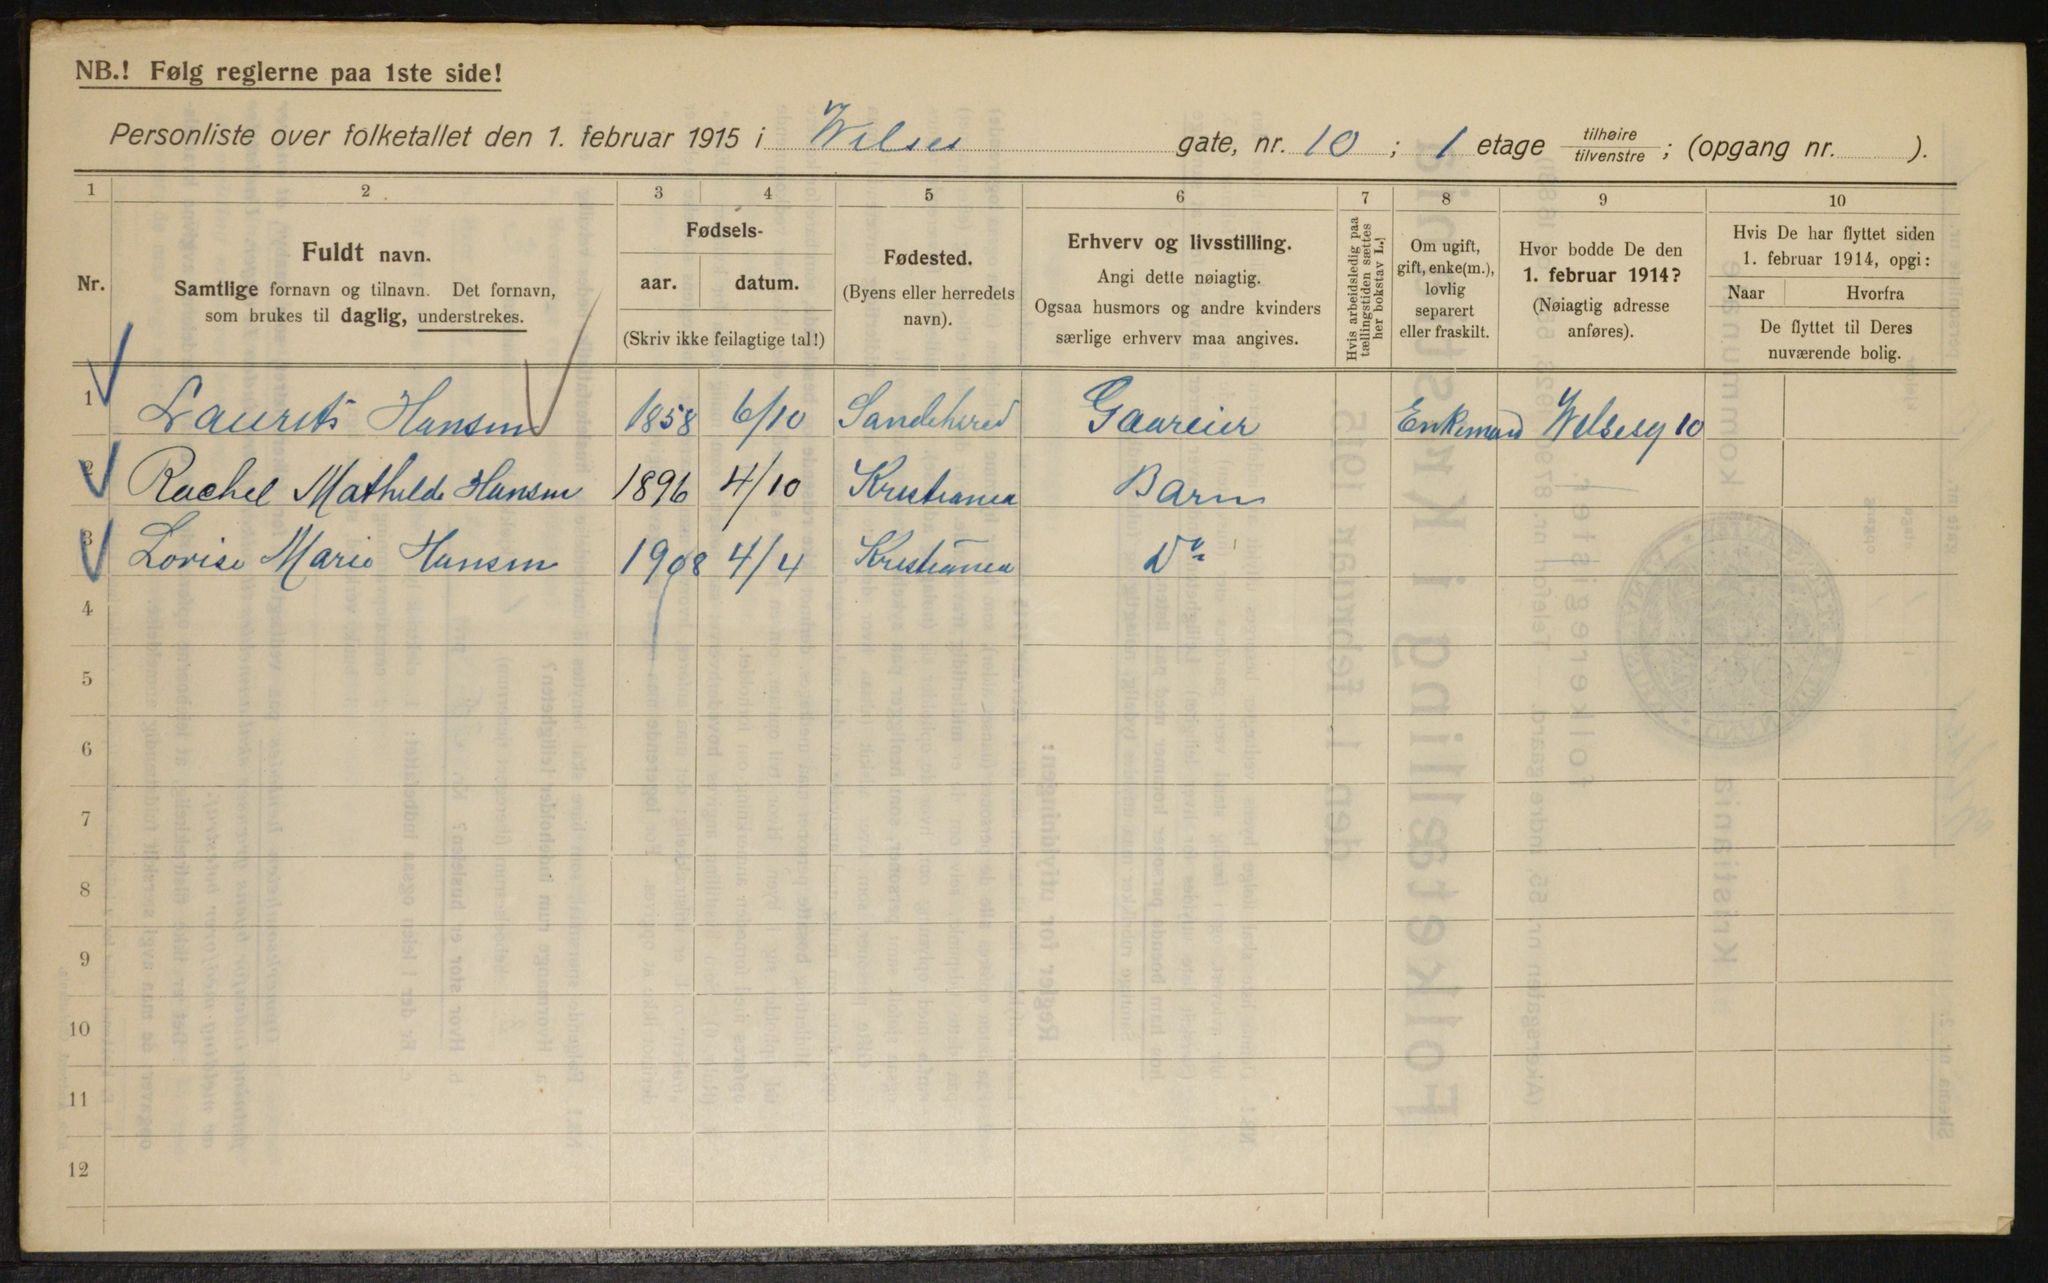 NB.! Følg reglerne paa 1ste side!
Personliste over folketallet den 1. februar 1915 i Welses gate, nr. 10 ; 1 etage tilhøire / tilvenstre ; (opgang nr. ).
1 2 3 4 5 6 7 8 9 10
Nr.
Fuldt navn.
Samtlige fornavn og tilnavn. Det fornavn,
som brukes til daglig, understrekes.
Fødsels-
aar. datum.
(Skriv ikke feilagtige tal!)
Fødested.
(Byens eller herredets
navn).
Erhverv og livsstilling.
Angi dette nøiagtig.
Ogsaa husmors og andre kvinders
særlige erhverv maa angives.
Hvis arbeidsledig paa
tællingstiden sættes
her bokstav L.]
Om ugift,
gift, enke(m.),
lovlig
separert
eller fraskilt.
Hvor bodde De den
1. februar 1914?
(Nøiagtig adresse
anføres).
Hvis De har flyttet siden
1. februar 1914, opgi:
Naar Hvorfra
De flyttet til Deres
nuværende bolig.
1 Laurits Hansen 1858 6/10 Sandeherred Gaareier Enkemand Welsesg 10
2 Rachel Mathilde Hansen 1896 4/10 Kristiania Barn
3 Lovise Marie Hansen 1908 4/4 Kristiania Do
4
5
6
7
8
9
10
11
12